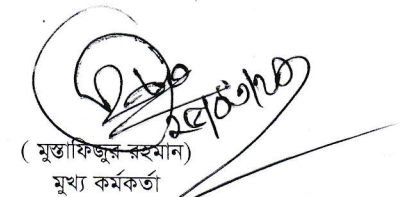 ( মুস্তাফিজুর রহমান)
মুখ্য কর্মকর্তা